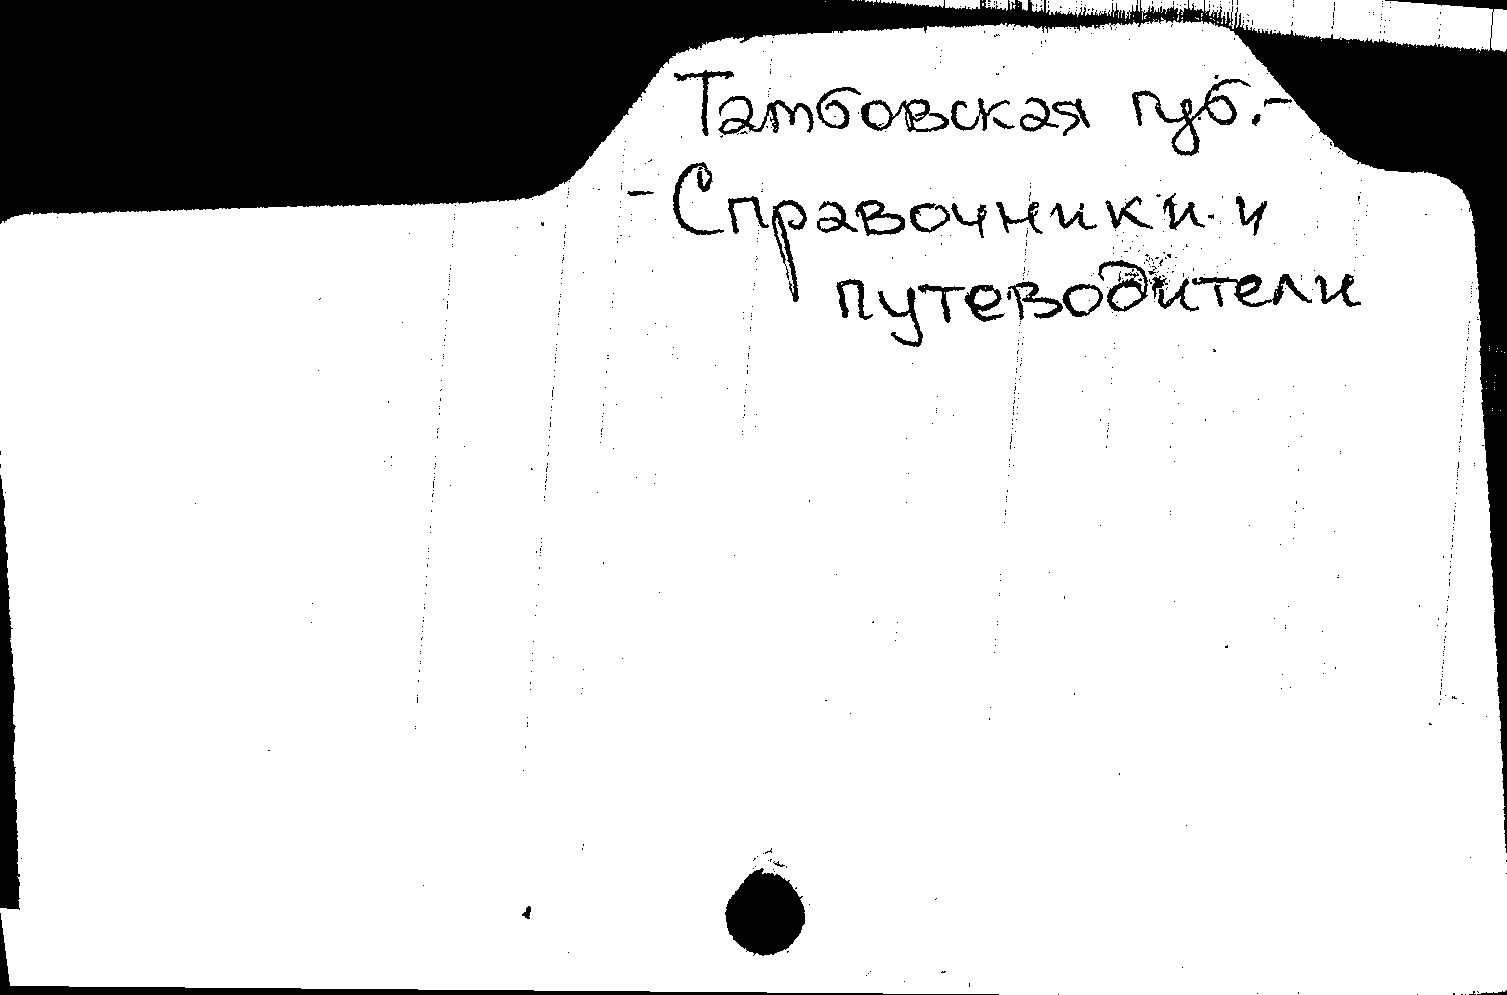 Тамбовская губ.-
- Справочники и
путеводители